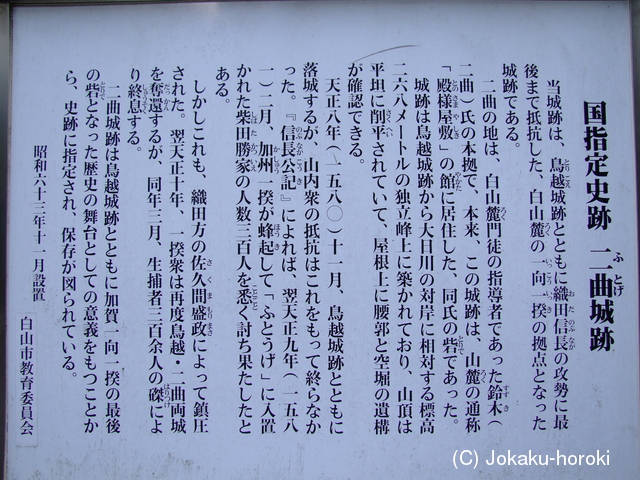 国指定史跡 二曲城跡
ふとげ
当城跡は、鳥越城跡とともに織田信長の攻勢に最
後まで抵抗した、白山麓の一向一揆の拠点となった
城跡である。
二曲の地は、白山麓門徒の指導者であった鈴木(
二曲)氏の本拠で、本来、この城跡は、山麓の通称
「殿様屋敷」の館に居住した、同氏の砦であった。
城跡は鳥越城跡から大日川の対岸に相対する標高
二六八メートルの独立峰上に築かれており、山頂は
平坦に削平されていて、屋根上に腰郭と空堀の遺構
が確認できる。
天正八年(一五八〇)十一月、鳥越城跡とともに
落城するが、山内衆の抵抗はこれをもって終らなか
った。『信長公記』によれば、翌天正九年(一五八
一)二月、加州一揆が蜂起して「ふとうげ」に入置
かれた柴田勝家の人数三百人を悉く討ち果たしたと
ある。
しかしこれも、織田方の佐久間盛政によって鎮圧
された。翌天正十年、一揆衆は再度鳥越・二曲両城
を奪還するが、同年三月、生捕者三百余人の磔によ
り終息する。
二曲城跡は鳥越城跡とともに加賀一向一揆の最後
の砦となった歴史の舞台としての意義をもつことか
ら、史跡に指定され、保存が図られている。
昭和六十三年十一月設置
白山市教育委員会
(C) Jokaku-horoki